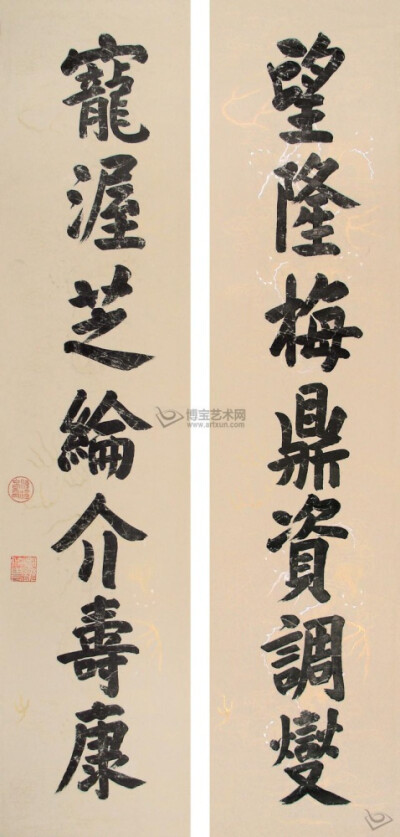 望隆梅鼎資調燮
寵渥芝綸介壽康
博宝艺术网
www.artxun.com